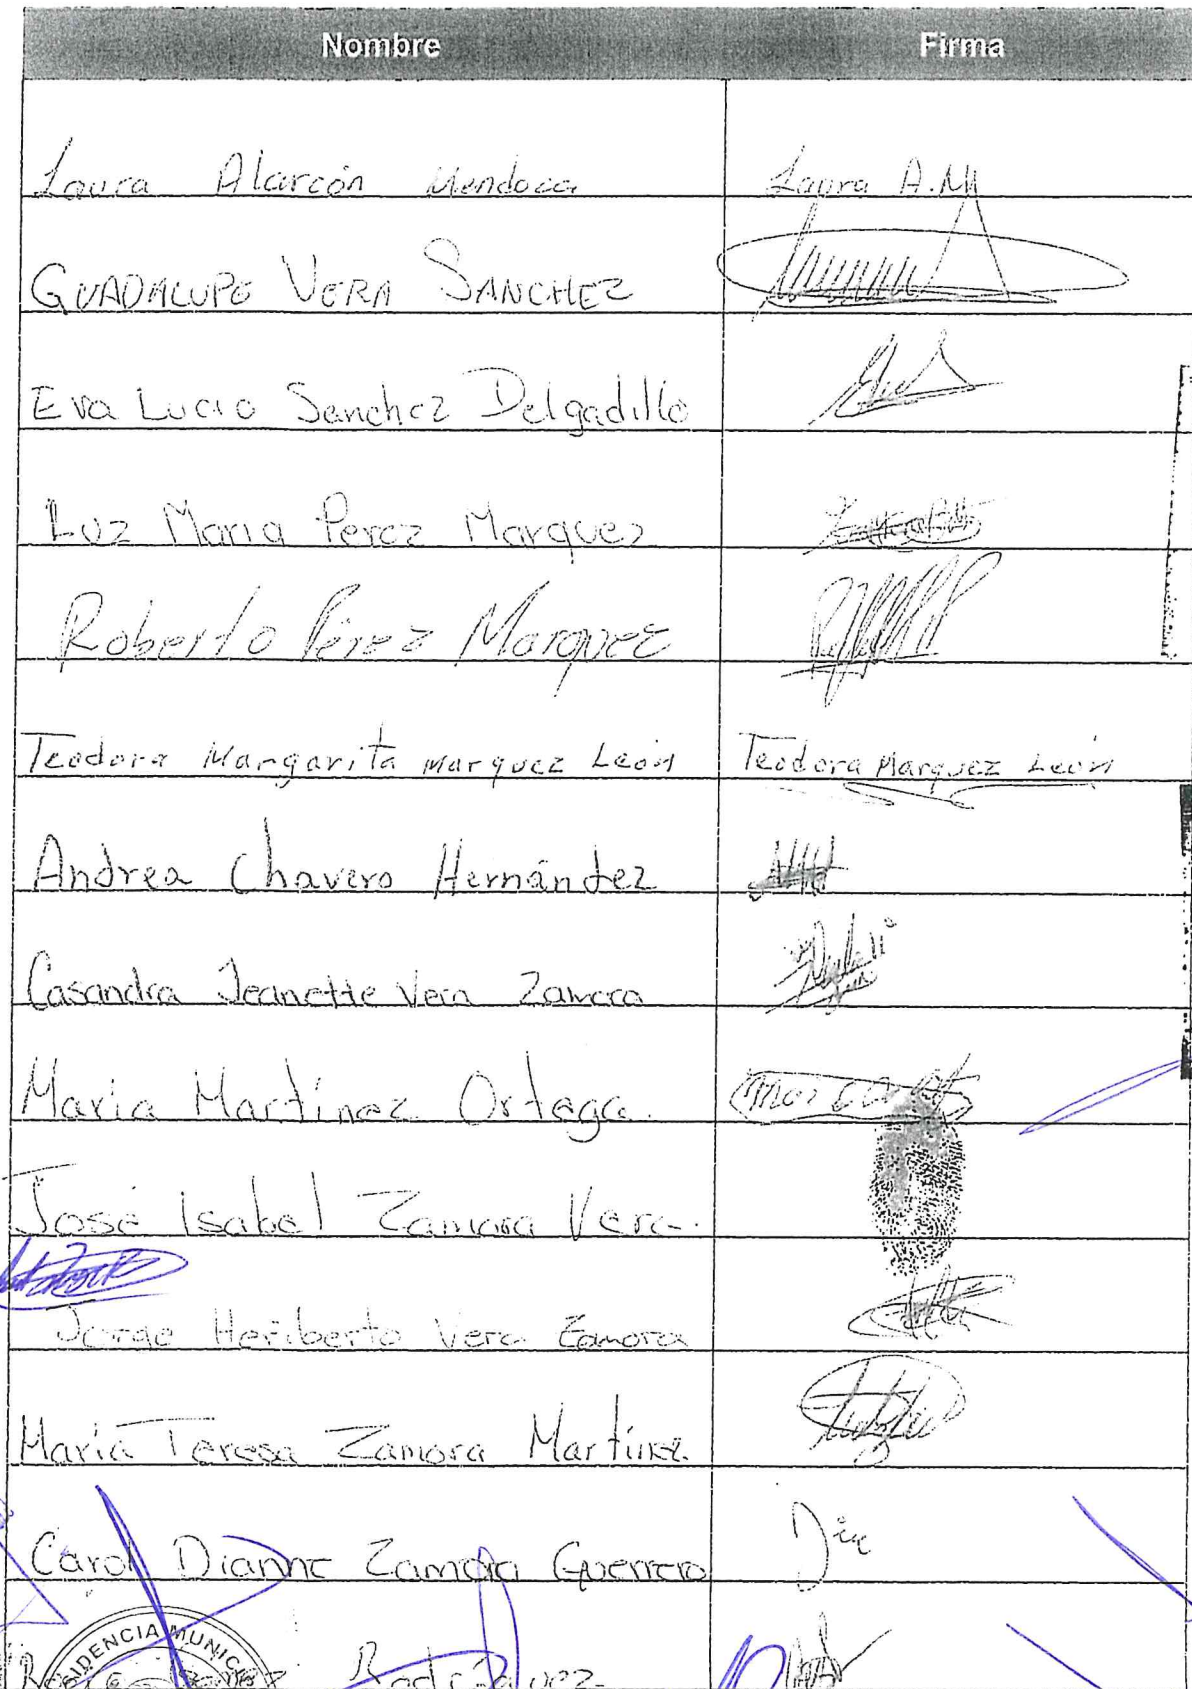 Nombre Firma
Laura Alarcón Mendoza Laura A.M
GUADALUPE VERA SANCHEZ
Eva Lucio Sanchez Delgadillo
Luz Maria Perez Marquez
Roberto Pérez Marquez
Teodora Margarita Marquez León Teodora Marquez León
Andrea Chavero Hernández
Casandra Jeanette Vera Zamora
Maria Martinez Ortega
José Isabel Zamora Vera
Jorge Heriberto Vera Zamora
María Teresa Zamora Martínez
Carol Dianne Zamora Guerrero
Rodríguez